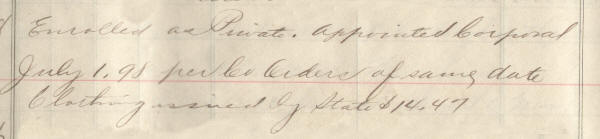 Enrolled as Private. Appointed Corporal
July 1.98 per Co Orders of same date
Clothing issued by State $14.47